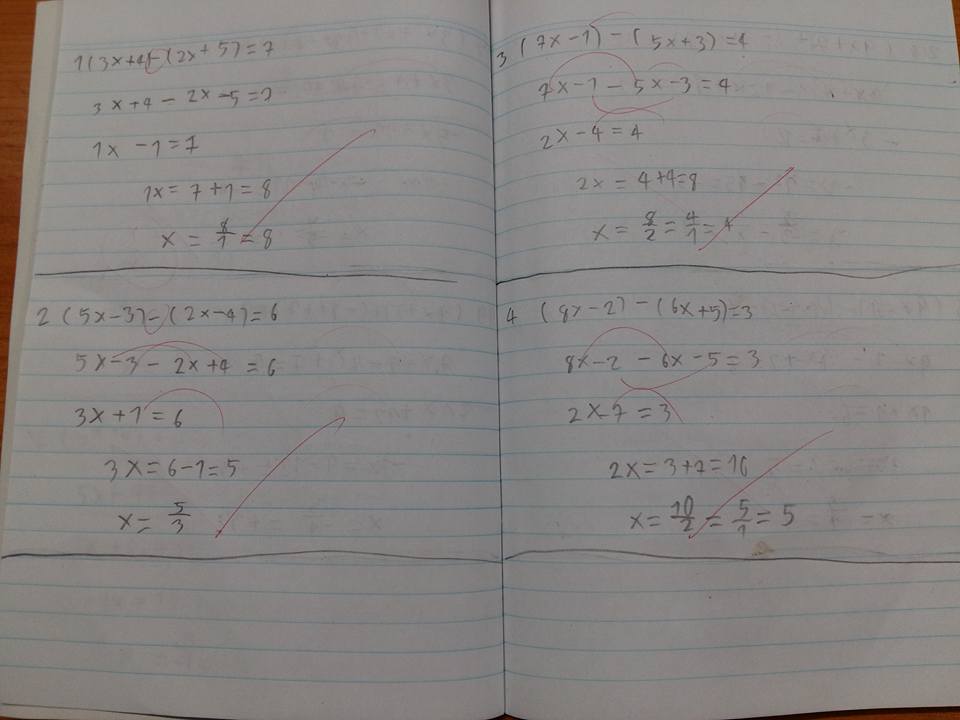 1(3x+4)-(2x+5)=7
3x+4-2x-5=7
1x-1=7
1x=7+1=8
x=8/1=8
2 (5x-3)-(2x-4)=6
5x-3-2x+4=6
3x+1=6
3x=6-1=5
x=5/3
3 (7x-1)-(5x+3)=4
7x-1-5x-3=4
2x-4=4
2x=4+4=8
x=8/2=4/1=4
4 (8x-2)-(6x+5)=3
8x-2-6x-5=3
2x-7=3
2x=3+7=10
x=10/2=5/1=5